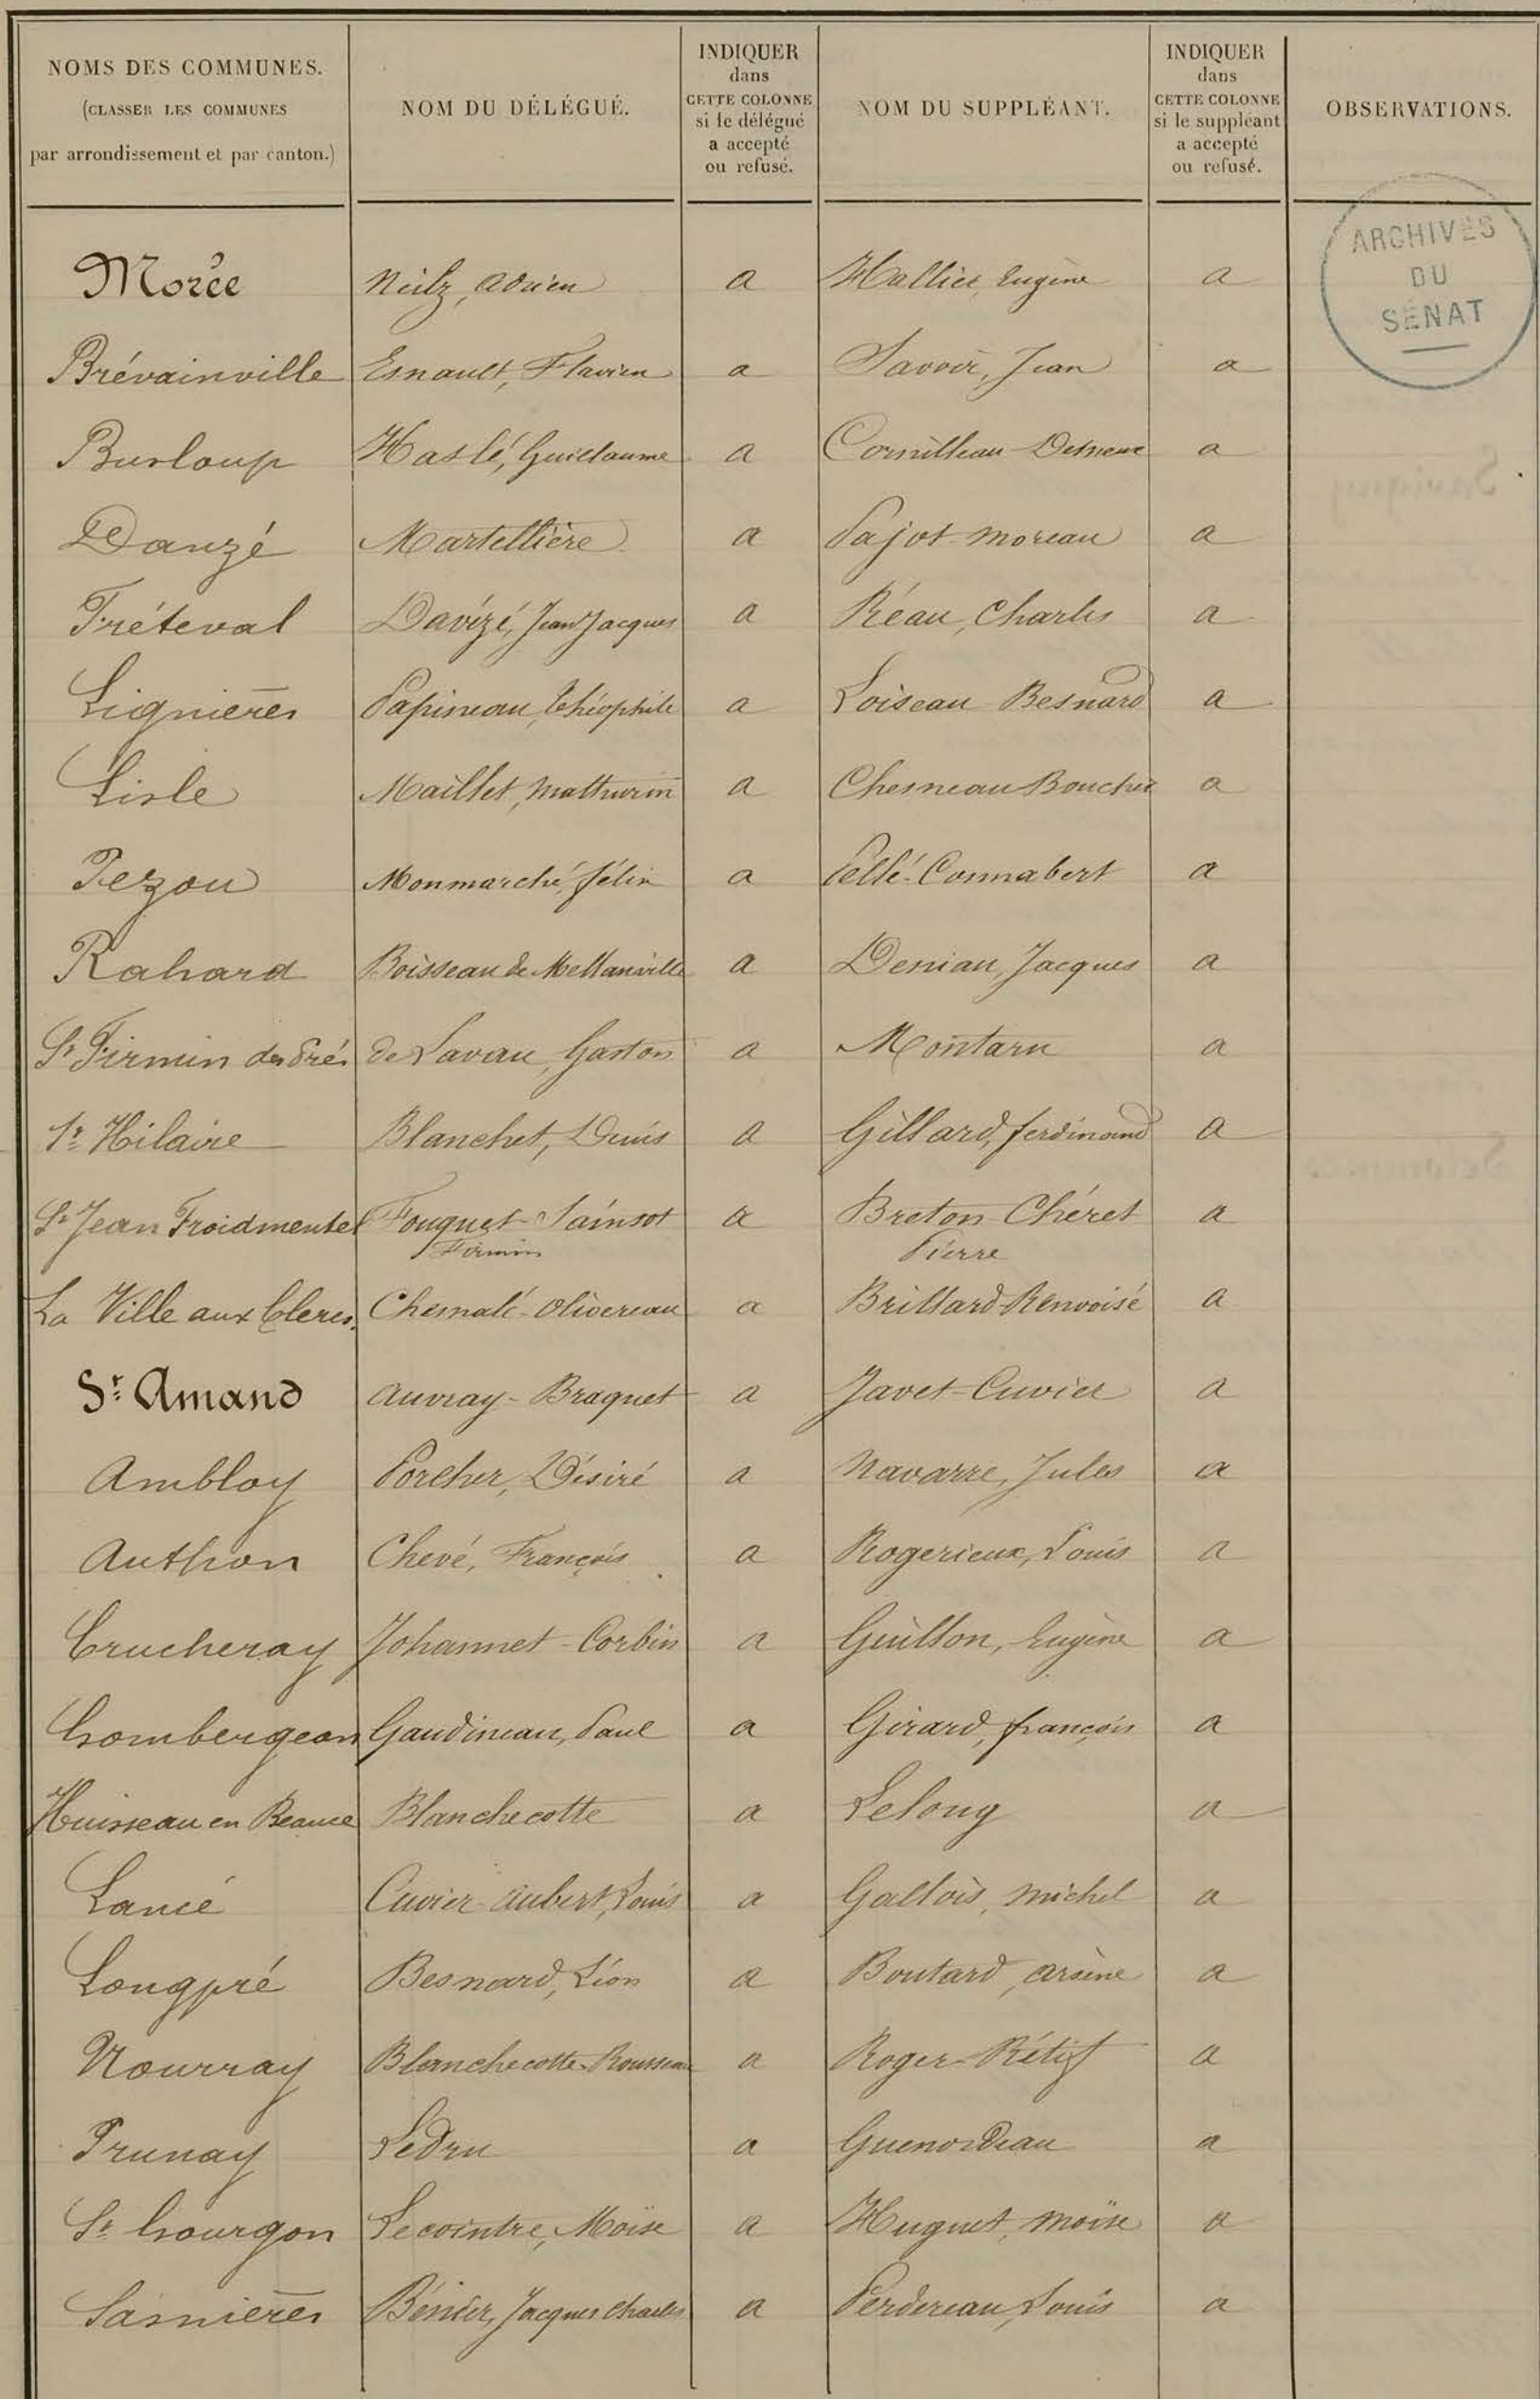 NOMS DES COMMUNES.
(CLASSER LES COMMUNES
par arrondissement et par canton.)
NOM DU DÉLÉGUÉ.
INDIQUER
dans
CETTE COLONNE
si le délégué
a accepté
ou refusé.
NOM DU SUPPLÉANT.
INDIQUER
dans
CETTE COLONNE
si le suppléant
a accepté
ou refusé.
OBSERVATIONS.
ARCHIVES
DU
SÉNAT
Morée Neilz, Adrien a Hallier, Eugène a
Brévainville Esnault, Flavien a Savoir, Jean a
Busloup Haslé, Guillaume a Cornilleau a
Danzé Martellière a Pajot-Moreau a
Fréteval Davézé, Jean Jacques a Réau, Charles a
Lignières Papineau, Théophile a Loiseau Besnard a
Lisle Maillet, Mathurin a Chesneau Boucher a
Pezou Monmarché, Félix a Pellé-Connabert a
Rahard Boisseau de Mellanville a Deniau, Jacques a
St Firmin des Prés de Lavau, Gaston a Montaru a
St Hilaire Blanchet, Denis a Gillard, ferdinand a
St Jean Froidmentel Fouquet-Sainsot a Breton-Chéret a
Firmin Pierre
La Ville aux Clercs. Chemalé-Olivereau a Brillard-Renvoisé a
St Amand Auvray-Braguet a Javet-Cuvier a
Ambloy Porcher, Désiré a Navarre, Jules a
Authon Chevé, François a Rogerieux, Louis a
Crucheray Johannet-Corbin a Guillon, Eugène a
Gombergean Gaudineau, Paul a Girard, françois a
Huisseau en Beauce Blanchecotte a Lelong a
Lancé Cuvier-Aubert, Louis a Gallois, Michel a
Longpré Besnard, Léon a Boutard, Arsène a
Nourray Blanchecotte-Rousseau a Roger-Rétif a
Prunay Ledru a Guenordeau a
St Gourgon Lecointre, Moïse a Huguet, Moïse a
Sasnières Bénier, Jacques Charles a Perdereau, Louis a